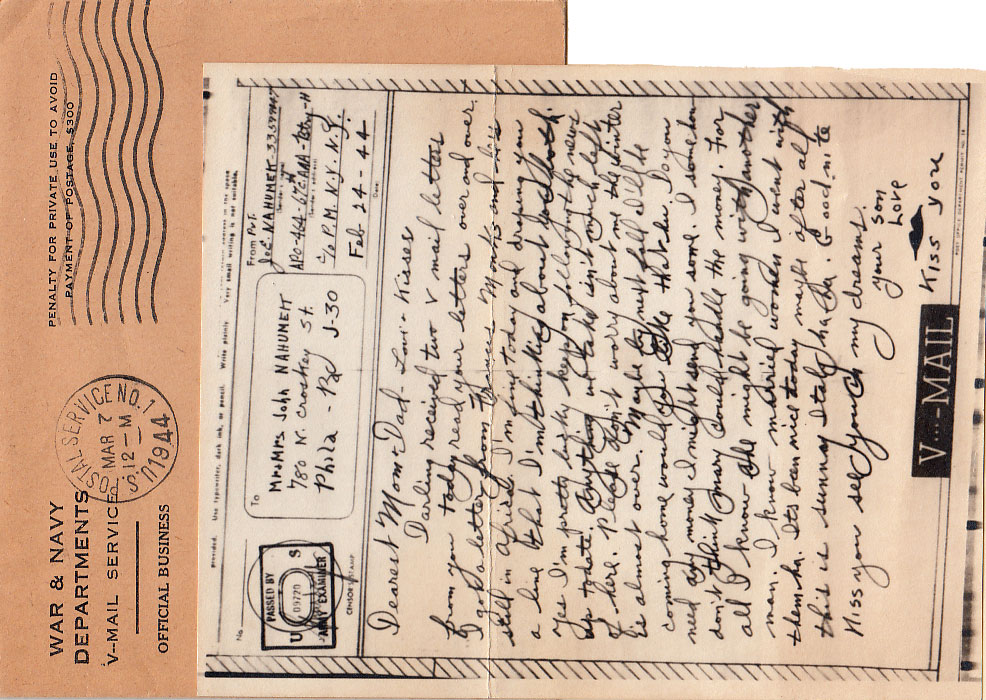 WAR & NAVY
DEPARTMENTS
V-MAIL SERVICE
OFFICIAL BUSINESS
POSTAL SERVICE NO. 1
MAR 7
12-M
1944
U.S.
PENALTY FOR PRIVATE USE TO AVOID
PAYMENT OF POSTAGE, $300
No.
provided. Use typewriter, dark ink, or pencil. Write plainly. Very small writing is not suitable.
PASSED BY
U S
09720
ARMY EXAMINER
CENSOR'S STAMP
To
Mr & Mrs John NAHUMEK
780 N. Croskey St.
Phila - Pa J-30
From Pvt.
Joe NAHUMEK
A.P.O. 464
C/o P.M. N.Y. N.Y.
Feb-24-44
Date
Dearest Mom & Dad - Love & Kisses
Darling received two V mail letters
from you today read your letters over and over.
I got a letter from
still in I'm fine today and droping you
a line & that I'm thinking about you both.
Yes I'm pretty lucky keep you following the news
up todate. Anything
of here. Please don't worry about me the winter
is almost over. Maybe by next fall I'll be
coming home would you like that ha ha. Do you
need any money I might send you some. I some how
don't think Mary could handle the money. For
all I know she might be going with another
man. I know married women I went with
them ha. Its been nice today maybe after all
this is sunny Italy ha ha. Good nite
Kiss you see you in my dreams.
your son
Love
Kiss you
V···-MAIL
POST OFFICE DEPARTMENT PERMIT NO.